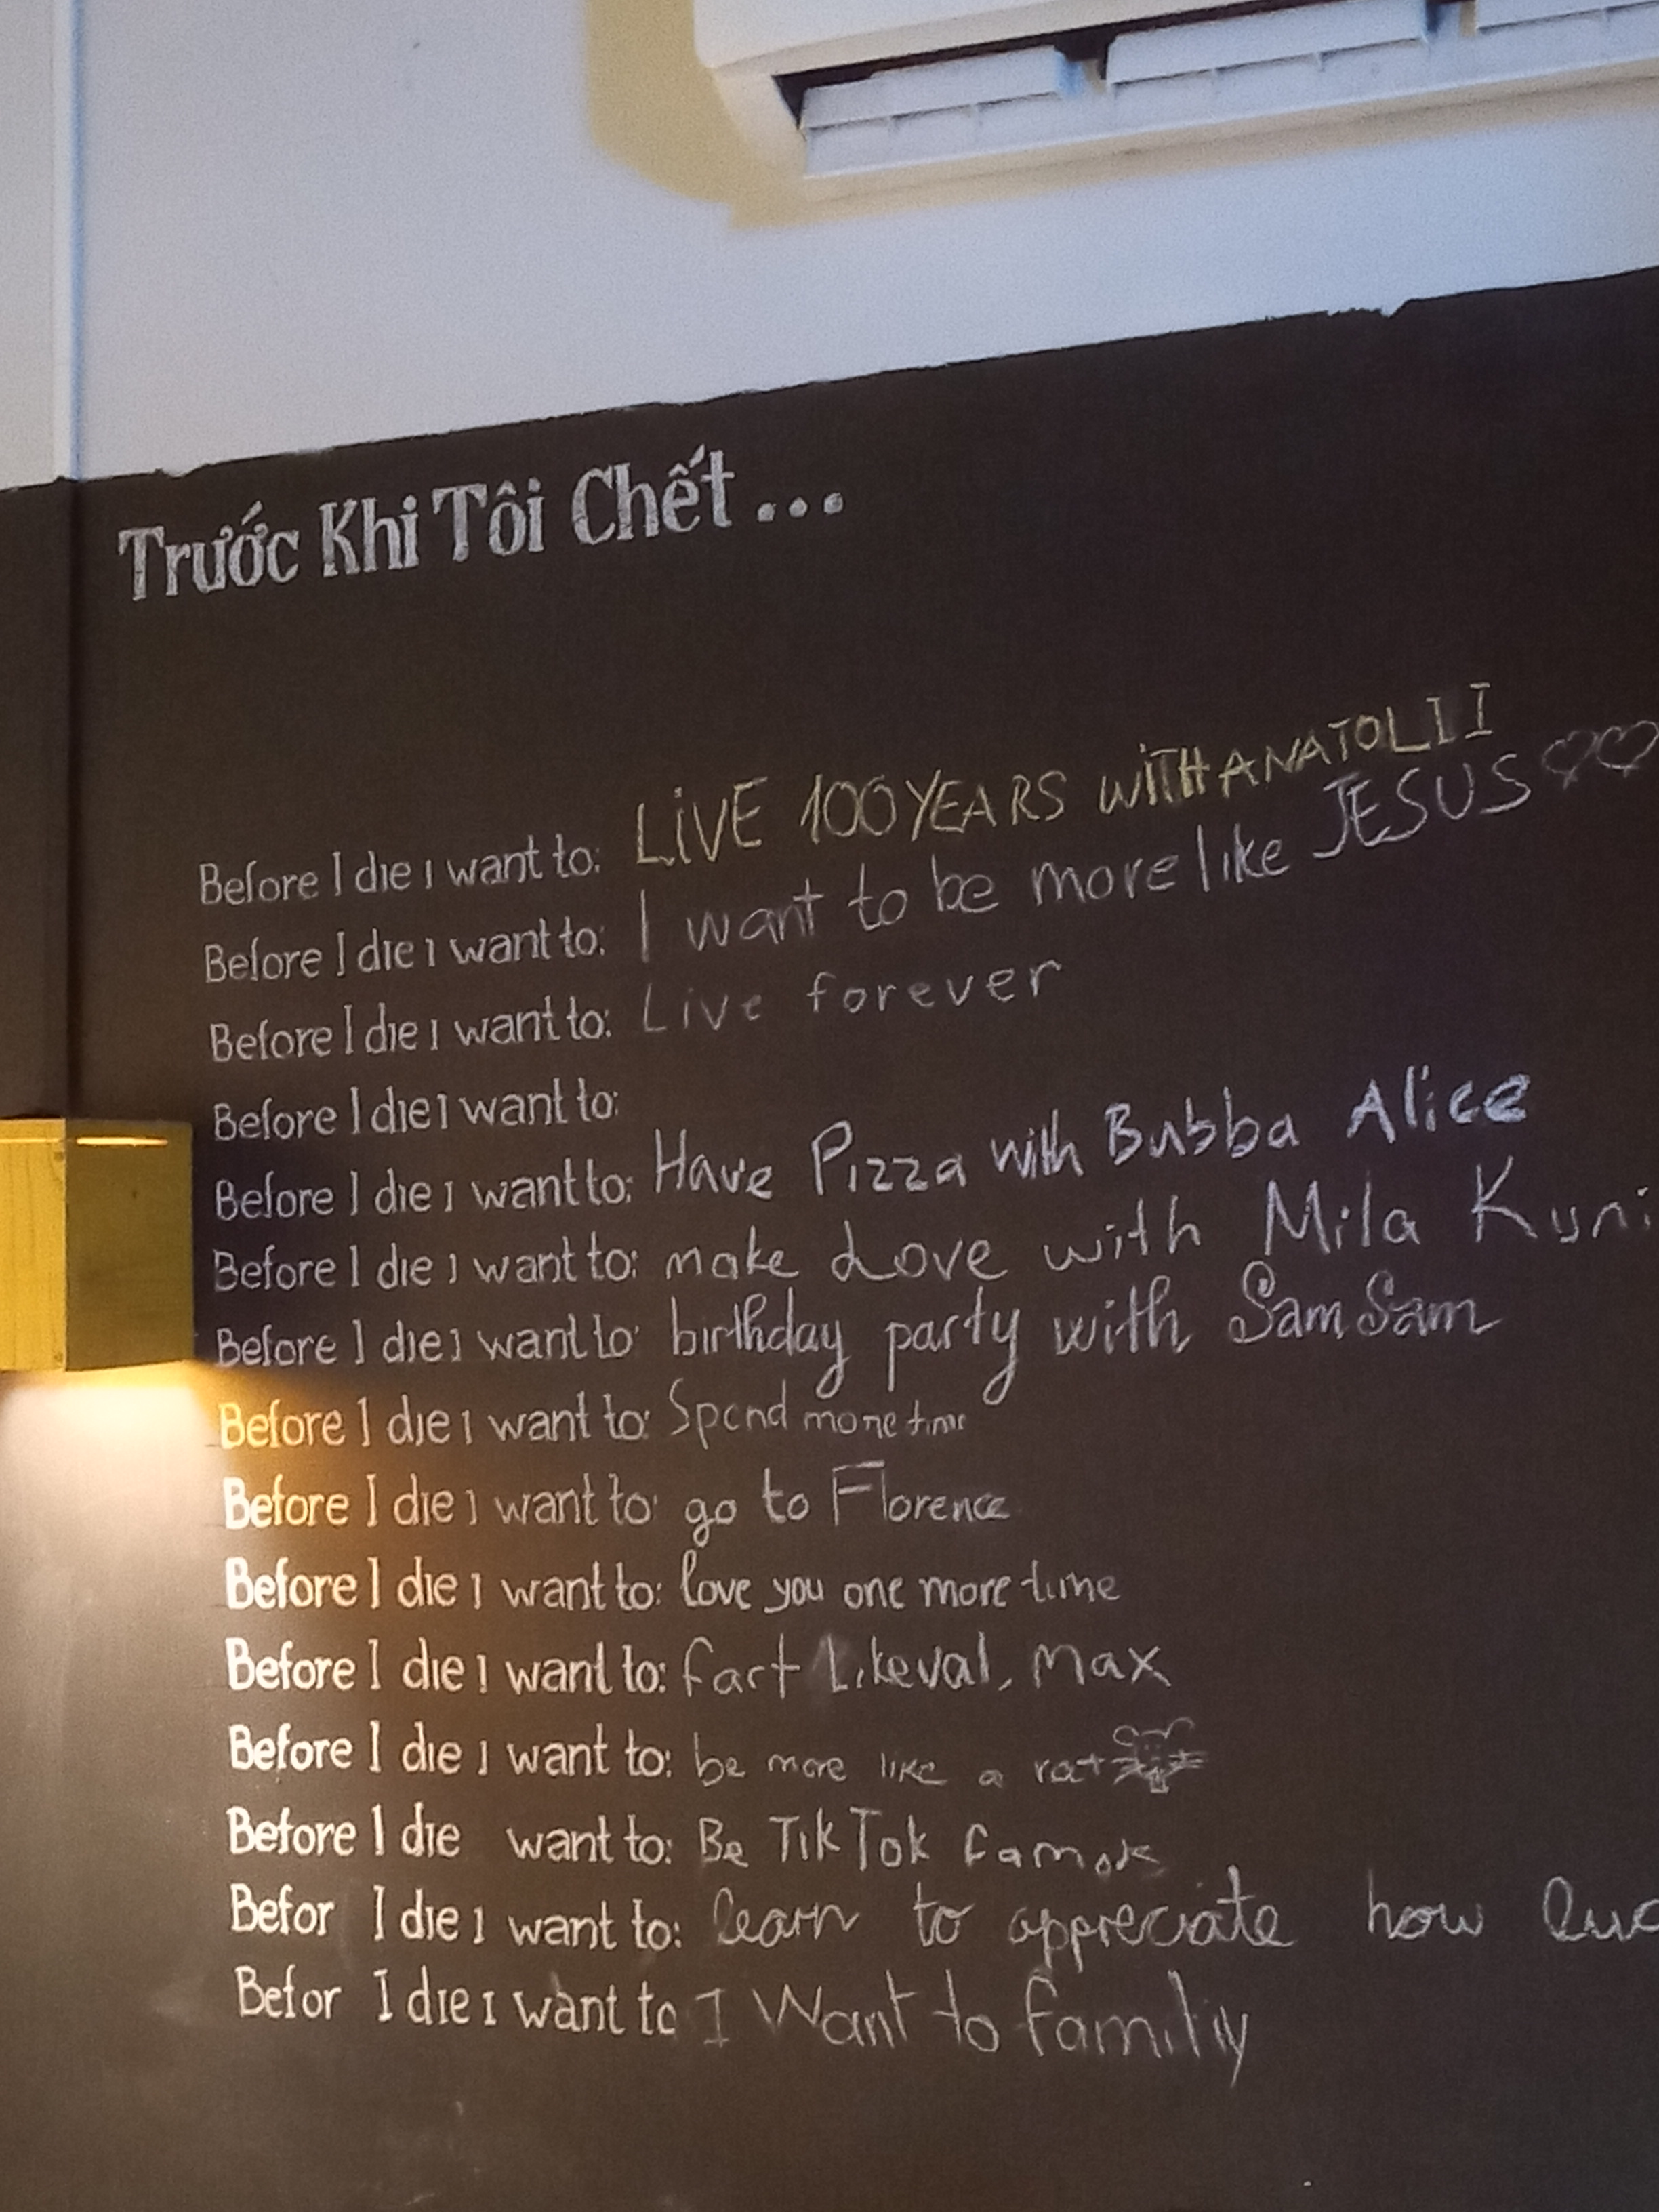 Trước Khi Tôi Chết...
Before I die I want to: LIVE 100 YEARS WITH ANATOLII
Before I die I want to: I want to be more like JESUS
Before I die I want to: Live forever
Before I die I want to:
Before I die I want to: Have Pizza with Bubba Alice
Before I die I want to: make Love with Mila Kuni
Before I die I want to: birthday party with Sam Sam
Before I die I want to: Spend more time
Before I die I want to: go to Florence
Before I die I want to: love you one more time
Before I die I want to: fart Like val, Max
Before I die I want to: be more like a rat
Before I die want to: Be TikTok
Befor I die I want to: learn to appreciate how
Befor I die I want to I Want to